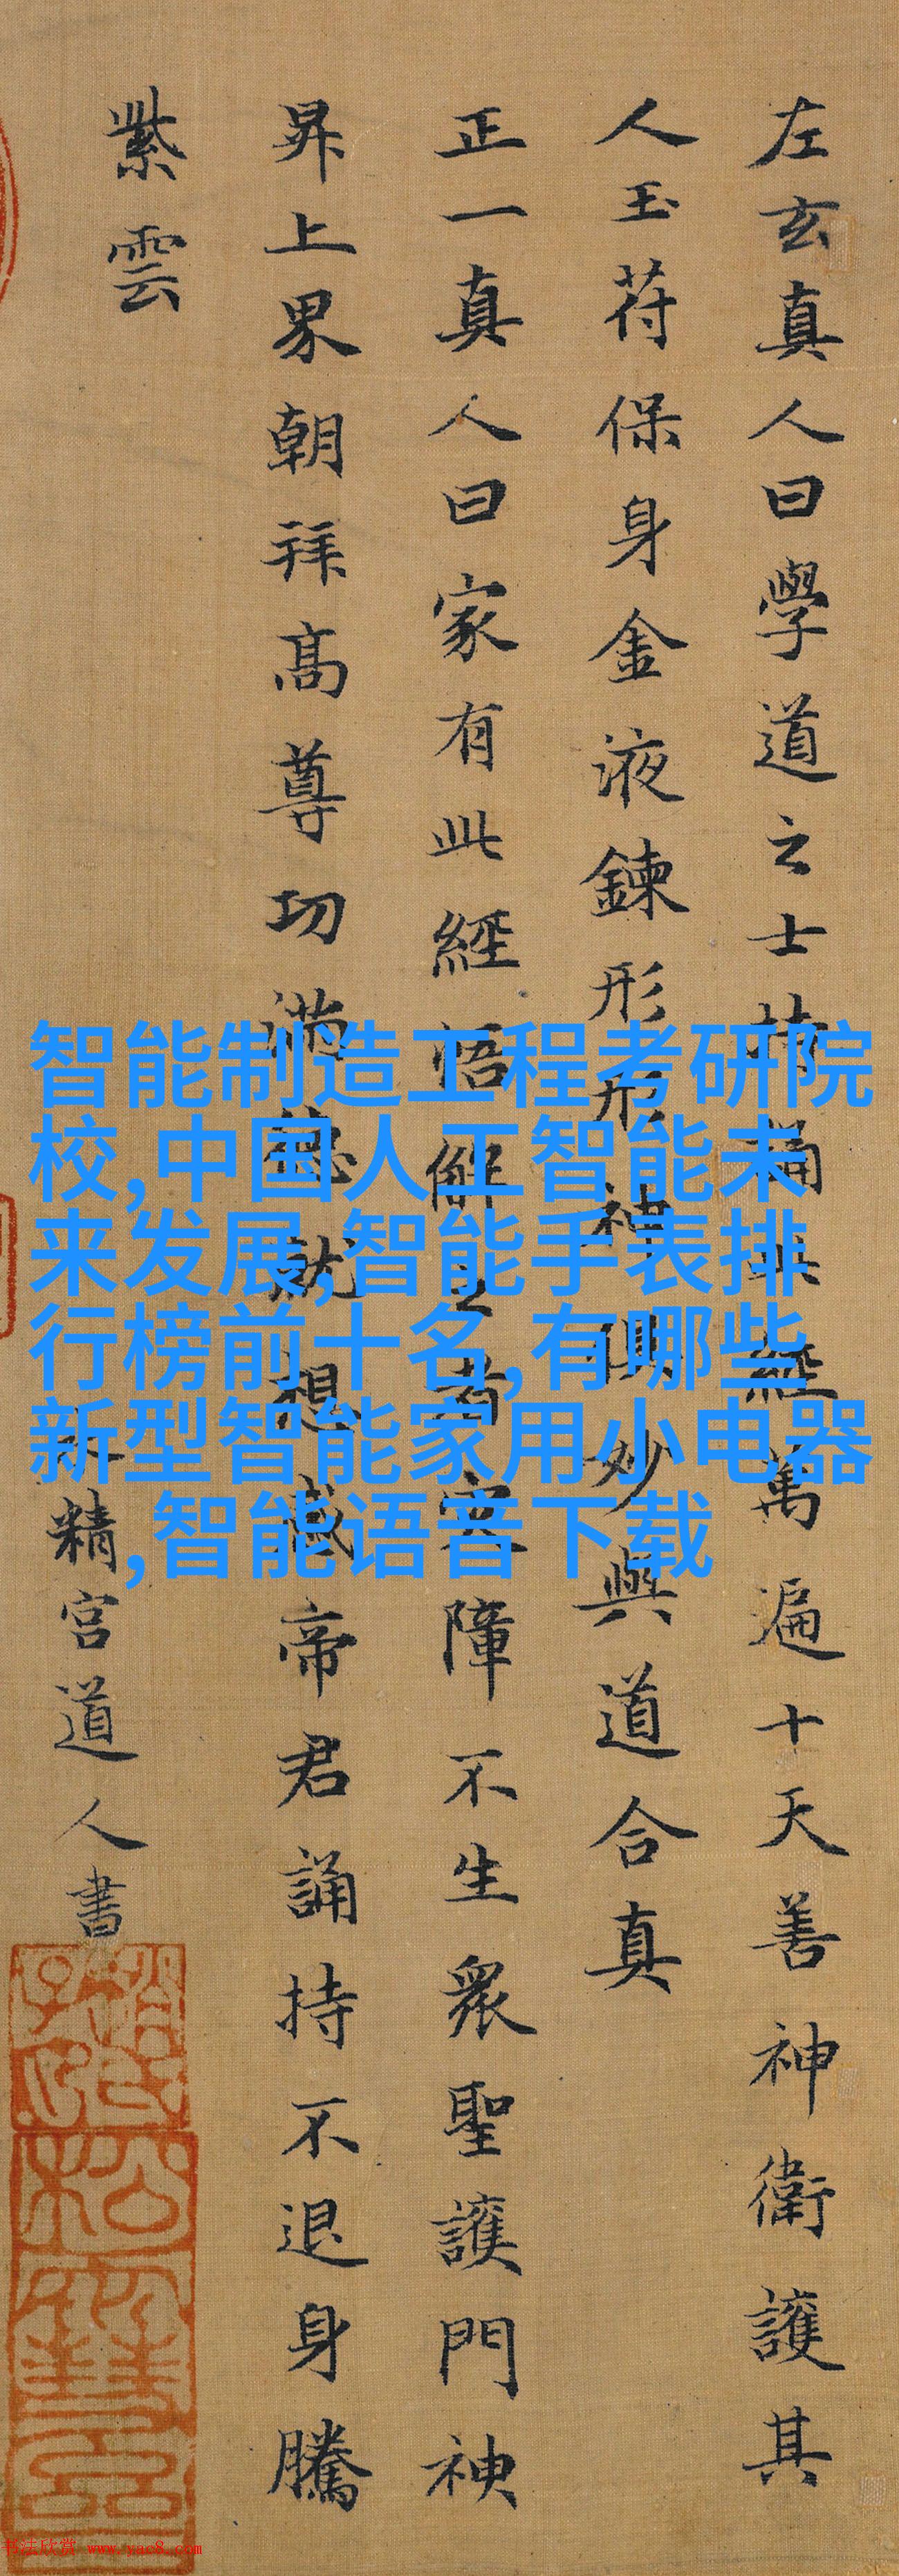 左玄真人曰學道之士持誦此經萬遍十天善神衛護其
人玉苻保身金液鍊形形神俱妙與道合真
正一真人曰家有此經悟解之者灾障不生衆聖護門神
昇上界朝拜高尊功滿德就想感帝君誦持不退身騰
紫雲
精宮道人書
智能制造工程考研院
校,中国人工智能未
来发展,智能手表排
行榜前十名,有哪些
新型智能家用小电器
,智能语音下载
书法欣赏 www.yac8.com